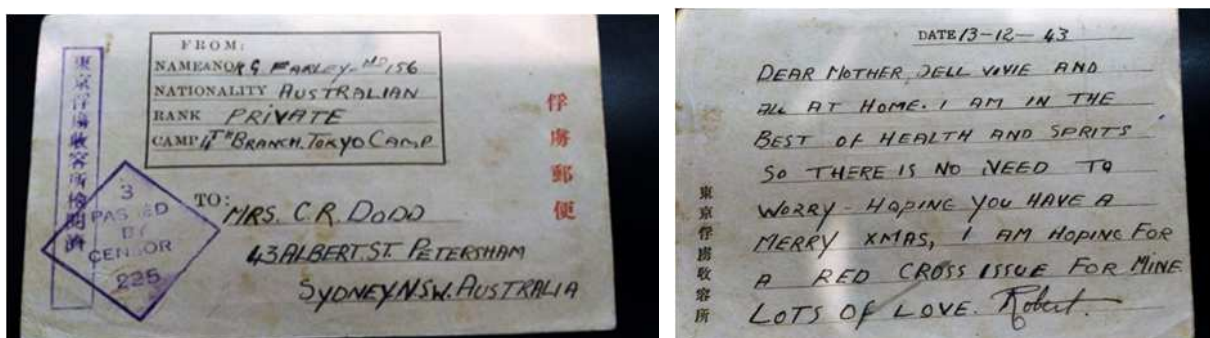 東京俘虜収容所検閲済
FROM:
NAME AND R G FARLEY - NO 156
NATIONALITY AUSTRALIAN
RANK PRIVATE
CAMP 4TH BRANCH. TOKYO CAMP
俘虜郵便
3
PASSED
BY
CENSOR
225
TO:
MRS. C. R. DODD
43 ALBERT. ST. PETERSHAM
SYDNEY. N.S.W. AUSTRALIA
DATE 13-12-43
DEAR MOTHER, DELL VIVIE AND
ALL AT HOME. I AM IN THE
BEST OF HEALTH AND SPRITS
SO THERE IS NO NEED TO
WORRY - HOPING YOU HAVE A
MERRY XMAS, I AM HOPING FOR
A RED CROSS ISSUE FOR MINE
LOTS OF LOVE. Robert.
東京俘虜収容所